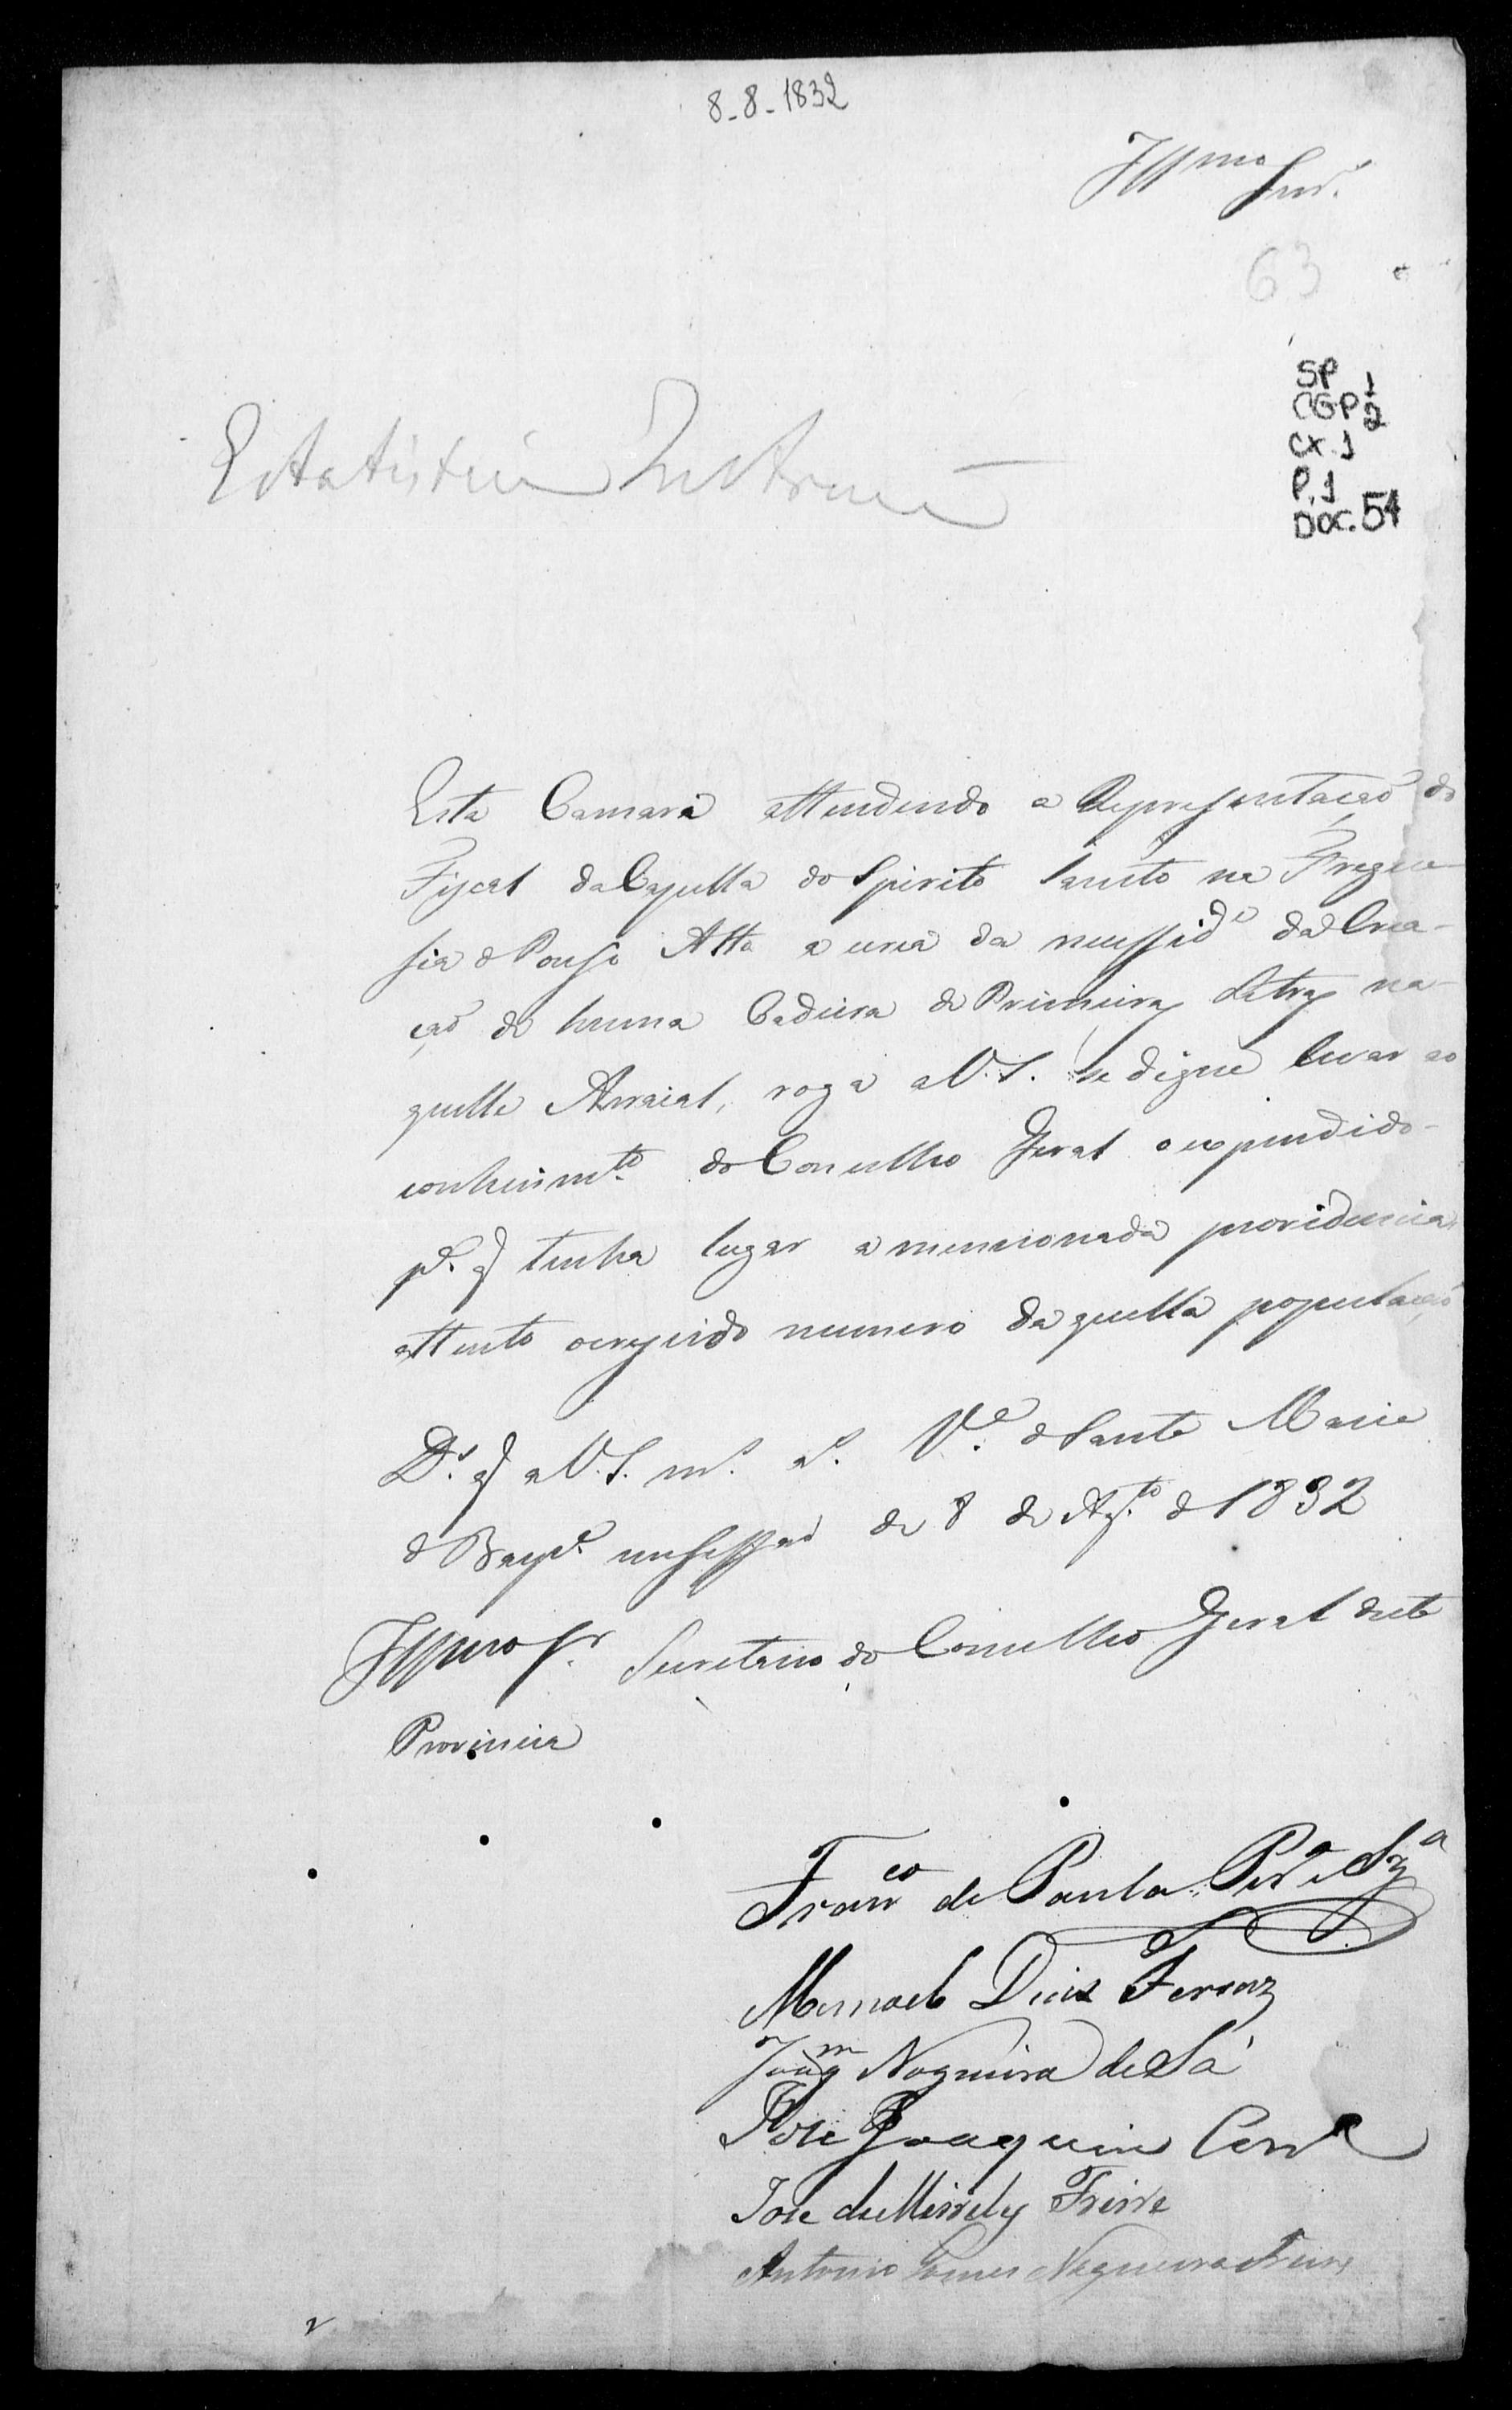 8-8-1832
Illmo Snr.
63
SP 1
CGP 2
CX. 1
P. 1
DOC. 54
Estatistica Instrucção
Esta Camara attendendo a Representação do
Fiscal da Capella do Spirito Santo na Fregue-
sia de Pouso Alto a cerca da necessid.e da Crea-
ção de huma Cadeira de Primeiras Letras na-
quelle Arraial, roga a V.S. se digne levar ao
conhecim.to do Conselho Geral o expendido
p.a q tenha lugar a mencionada providencia,
attento o crescido numero daquella população
D.s g.e a V.S. m.s a.s V.a de Santa Maria
de Baep.di em sessão de 8 de Ag.to de 1832
Illmo Sr. Secretario do Conselho Geral desta
Provincia
Fran.co de Paula Per.a e Sz.a
Manoel Dias Ferraz
Joaq.m Nogueira de Sá
Jose Joaquim
Jose de Meirelles Freire
Antonio Gomes Nogueira Freire